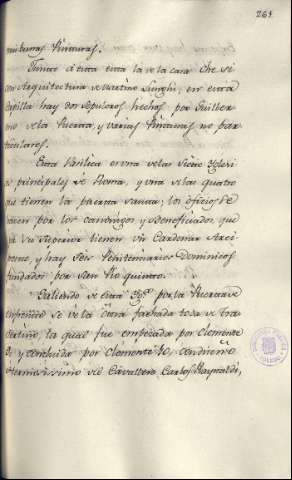 261
pinturas
Junto á esta esta la de la casa
Arquitectura de Martino Lunghi, en esta
Capilla hay dos sepulcros hechos por Guiller
mo de la Puerta, y varias Pinturas no par
ticulares.
Esta Basilica es una de las Siete Iglesi
as principales de Roma, y una de las quatro
que tienen la puerta santa; los oficios se
hacen por los canonigos y Beneficiados que
por su superior tienen un Cardenal Arci
preste, y hay Seis Penitenciarios Dominicos
fundados por san Pio quinto.
Saliendo de esta Igª por la Puerta de
enfrente se ve la otra fachada toda de tra
bertino, la qual fue empezada por Clemente
9, y concluida por Clemente 10, con diseño
del Cavallero Carlos Raynaldi,